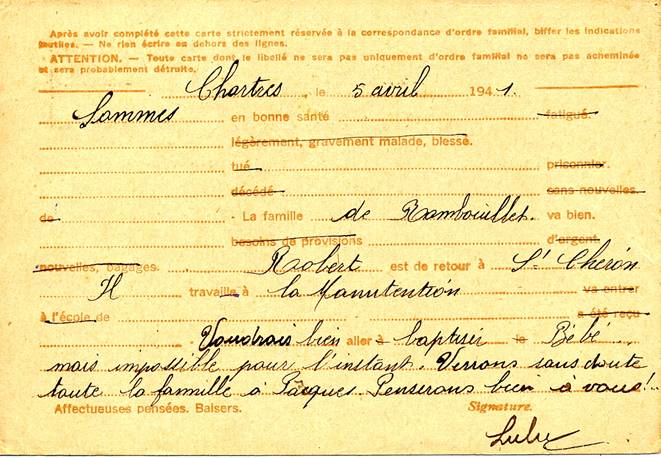 Après avoir complété cette carte strictement réservée à la correspondance d'ordre familial, biffer les indications
inutiles. — Ne rien écrire en dehors des lignes.
ATTENTION. — Toute carte dont le libellé ne sera pas uniquement d'ordre familial ne sera pas acheminée
et sera probablement détruite.
Chartres, le 5 avril 1941.
Sommes en bonne santé fatigué.
légèrement, gravement malade, blessé.
tué prisonnier.
décédé sans nouvelles
de - La famille de Rambouillet va bien.
besoins de provisions d'argent
nouvelles, bagages. Robert est de retour à St Chéron
Il travaille à la Manutention va entrer
à l'école de a été reçu
Voudrais bien aller à baptiser le Bébé
mais impossible pour l'instant. Verrons sans doute
toute la famille à Pâques. Penserons bien à vous!
Affectueuses pensées. Baisers. Signature.
Lulu